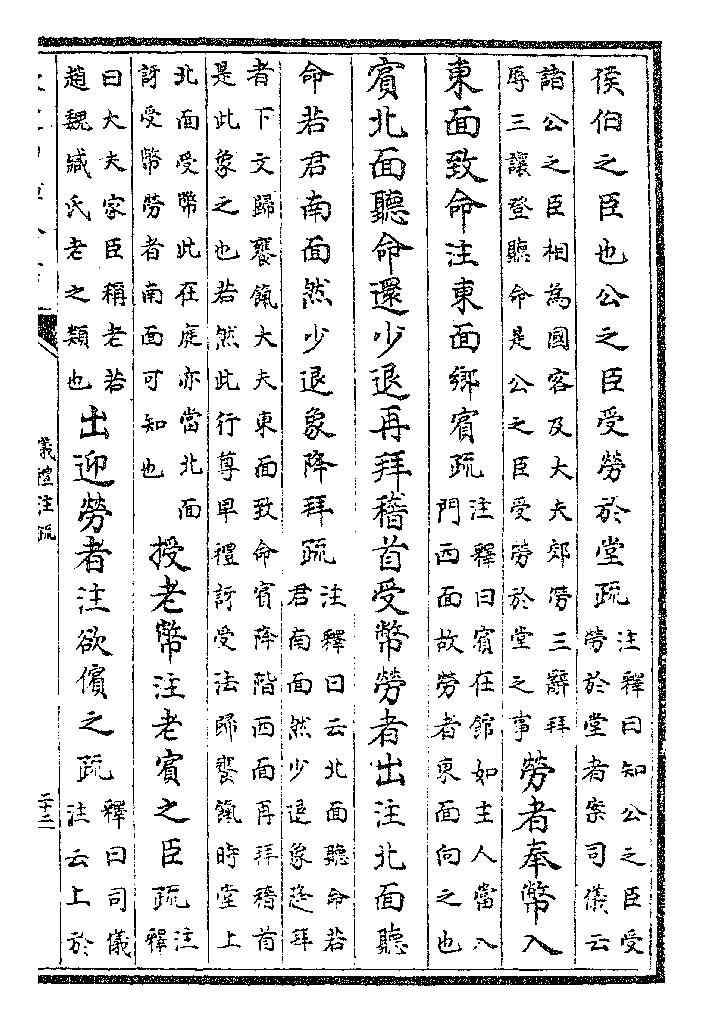 侯伯之臣也公之臣受勞於堂疏注釋曰知公之臣受勞於堂者案司儀云
諸公之臣相為國客及大夫郊勞三辭拜辱三讓登聽命是公之臣受勞於堂之事勞者奉幣入
東面致命注東面鄉賓疏注釋曰賓在館如主人當入門西面故勞者東面向之也
賓北面聽命還少退再拜稽首受幣勞者出注北面聽
命若君南面然少退象降拜疏注釋曰云北面聽命若君南面然少退象降拜
者下文歸饔餼大夫東面致命賓降階西面再拜稽首是此象之也若然此行尊卑禮訝受法歸饔餼時堂上
北面受幣此在庭亦當北面訝受幣勞者南面可知也授老幣注老賓之臣疏注釋
曰大夫家臣稱老若趙魏臧氏老之類也出迎勞者注欲儐之疏釋曰司儀注云上於
儀禮注疏
二十二